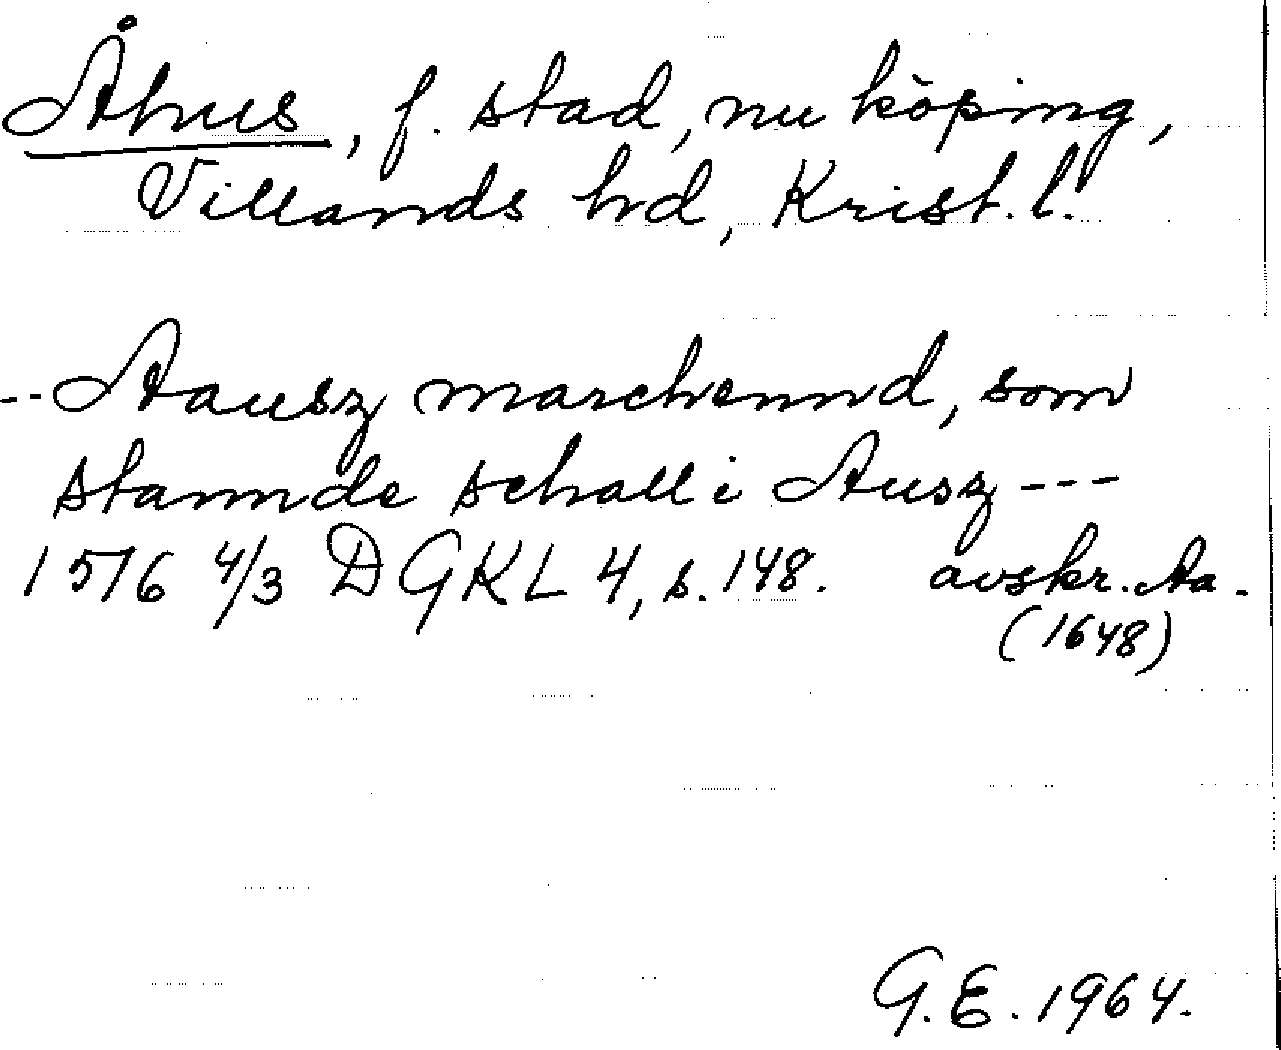 Åhus, f. stad, nu köping,
Villands hd, Krist. l.
-- Aausz marchennd, som
stannde schall i Ausz ---
1576 4/3 DGKL 4, s. 148. avskr. Aa.
(1648)
G.E. 1964.